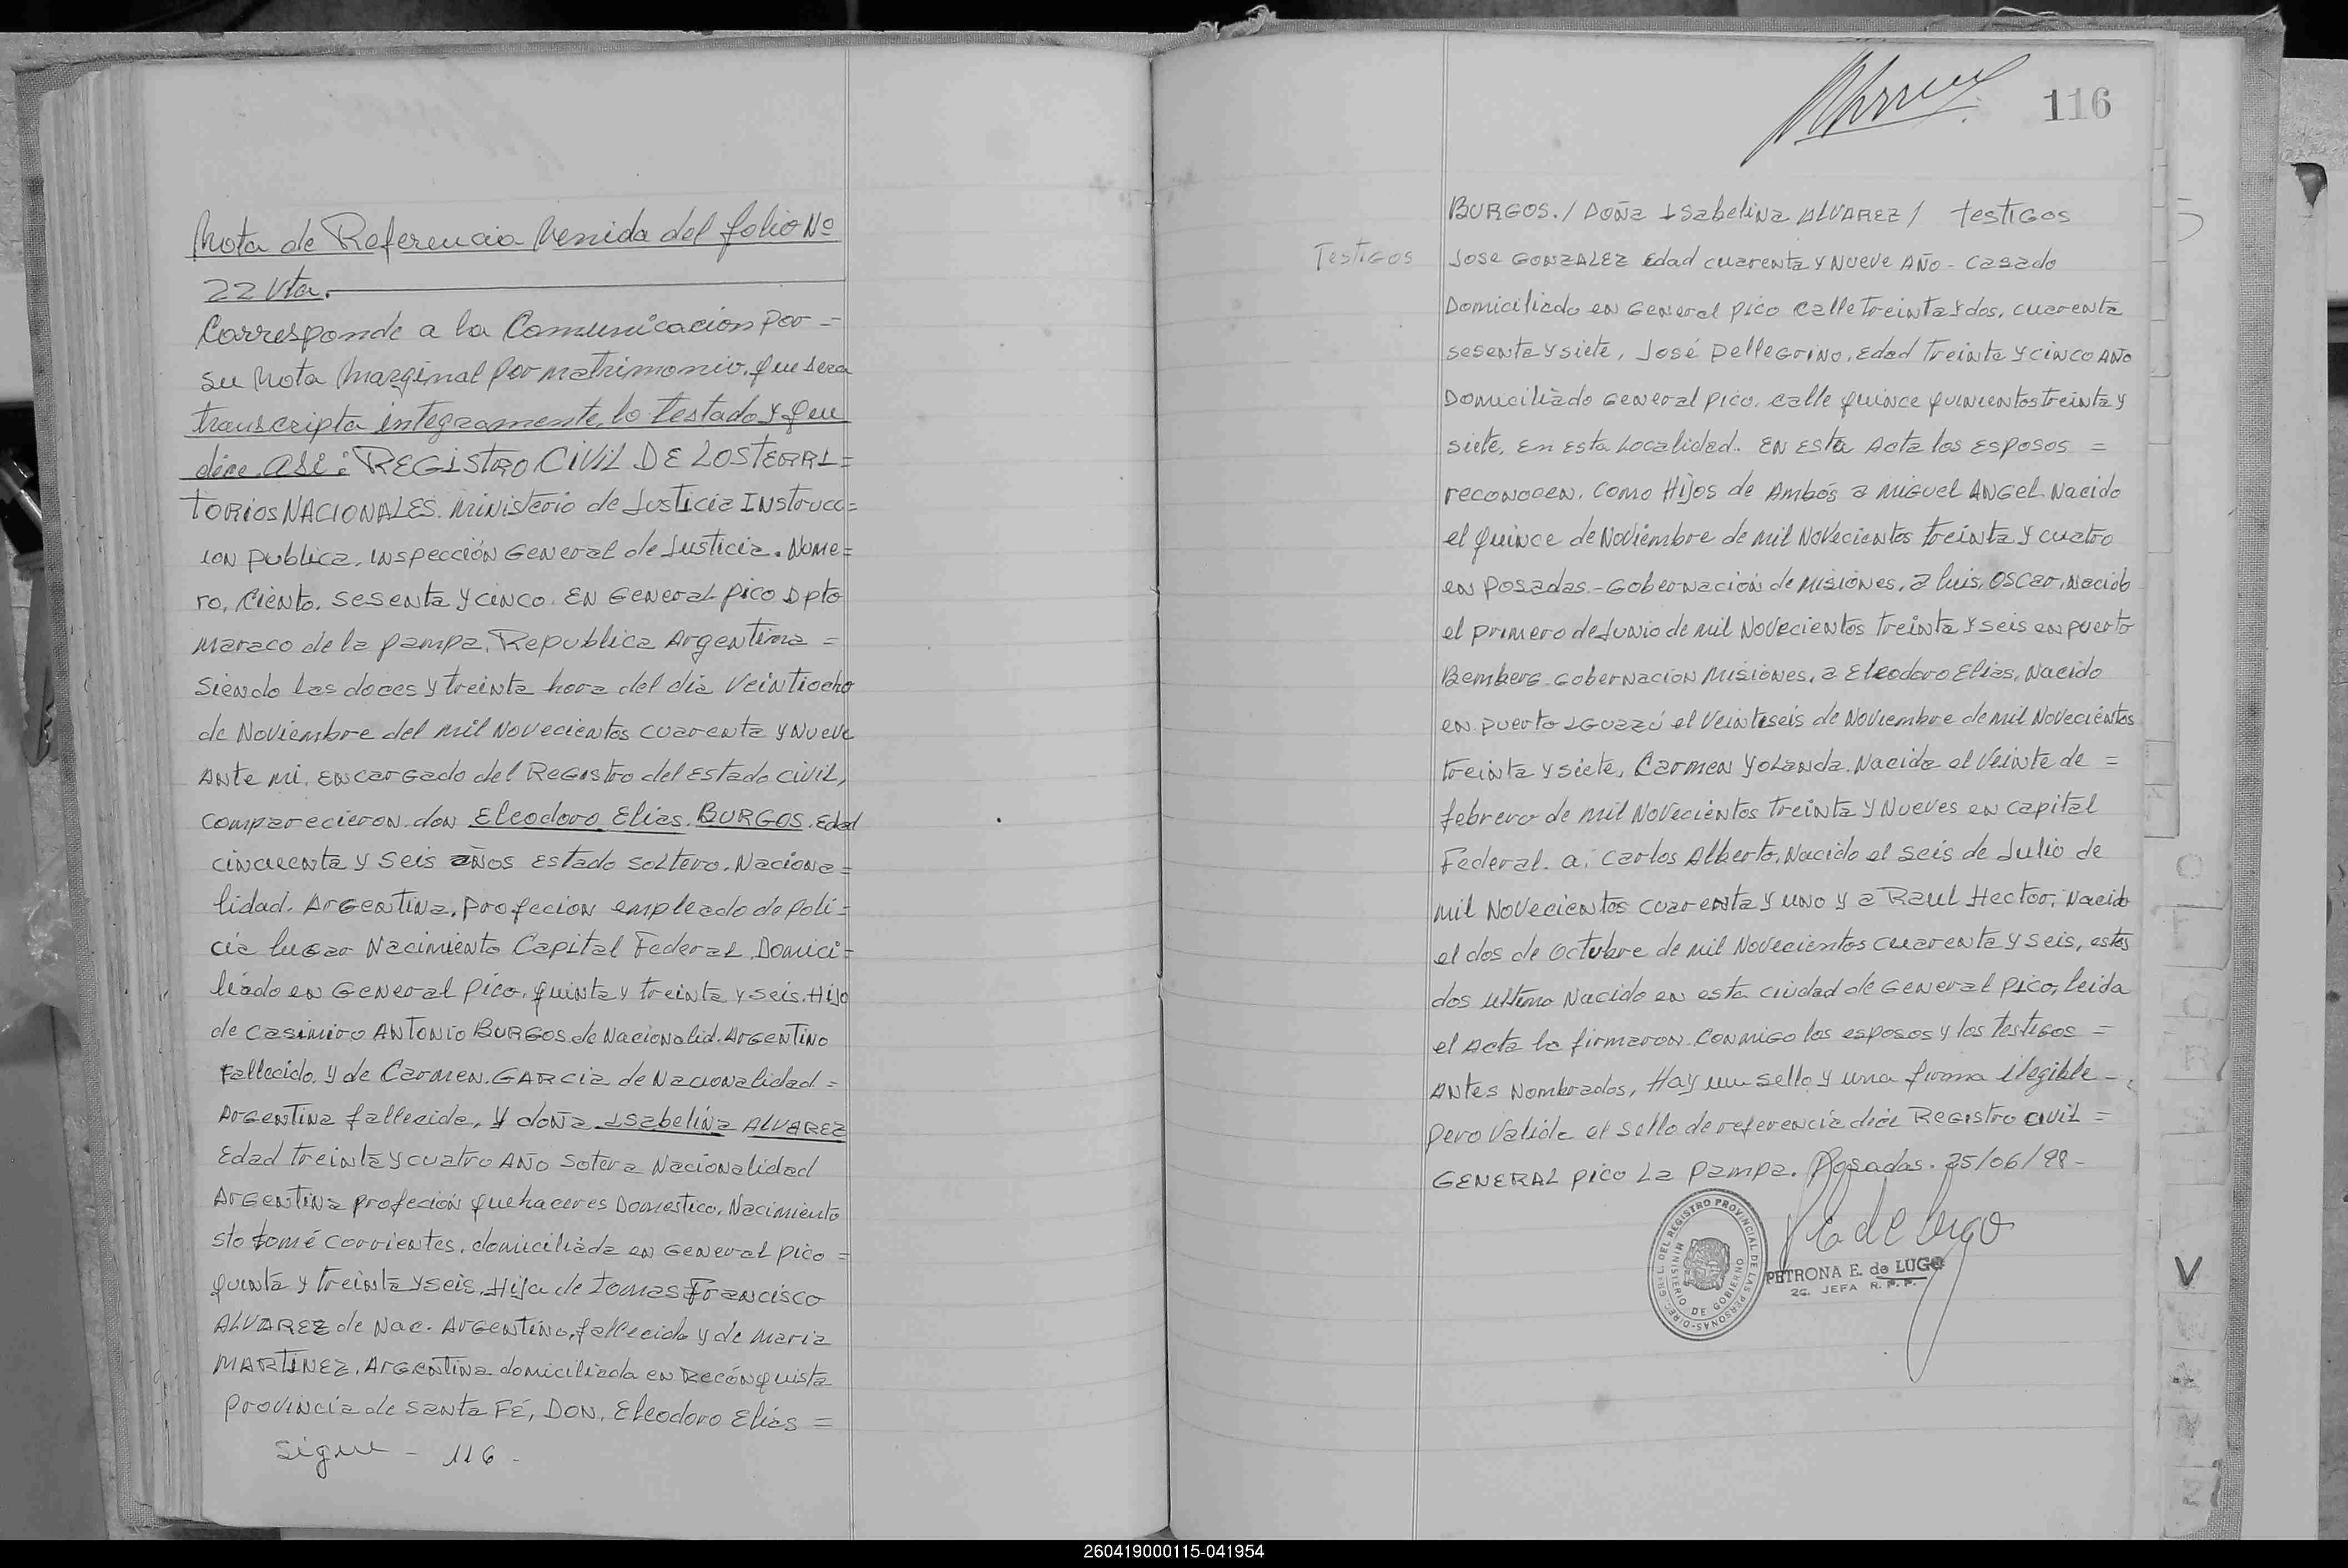 Nota de Referencia Venida del folio Nº
22 Vta.
Corresponde a la Comunicacion por =
su Nota Marginal por matrimonio. que sera
transcripta integramente, lo testado y que
dice. asi: REGISTRO CIVIL DE LOS TERRI=
TORIOS NACIONALES. Ministerio de Justicia INstrucc=
ion publica. INspección General de Justicia. Nume=
ro, Ciento. sesenta y cinco. EN General pico Dpto
maraco de la pampa. Republica Argentina =
siendo las doces y treinta hora del dia Veintiocho
de Noviembre del mil Novecientos cuarenta y Nueve
ANte mi. encargado del Registro del estado civil,
comparecieron. don Eleodoro Elias. BURGOS. Edad
cincuenta y seis años estado soltero. Naciona=
lidad. ArGentina. profecion empleado de poli=
cia lugar Nacimiento Capital Federal Domici=
liado en General pico. quinta y treinta y seis. Hijo
de casimiro ANTONIO BURGOS de Nacionalid. ArGentino
Fallecido. y de Carmen. GARCIA de Nacionalidad =
ArGentina fallecida, y doña Isabelina ALVAREZ
Edad treinta y cuatro AÑO sotera Nacionalidad
ArGentina profeción quehaceres Domestico. Nacimiento
sto tomé corrientes. domiciliada en General pico =
quinta y treinta y seis. Hija de tomas Francisco
ALVAREZ de Nac. ArGentino, fallecido y de maria
MARTINEZ. ArGentina domiciliada en Recónquista
provincia de santa FÉ, DON. Eleodoro Elias =
sigue - 116 -
116
BURGOS. / DOÑa Isabelina ALVAREZ / testIGos
TestIGos
Jose GONZALEZ Edad cuarenta y Nueve AÑO - casado
Domiciliado en General pico calle treinta y dos, cuarenta
sesenta y siete, José pelleGrino. Edad treinta y cinco AÑO
Domiciliàdo General pico. calle quince quinientos treinta y
siete, en esta Localidad. EN esta Acta los Esposos =
reconocen. como Hijos de Ambos a miguel ANGel Nacido
el quince de Noviembre de mil Novecientos treinta y cuatro
en posadas - Gobernación de misiónes, a luis, Oscar, Nacido
el primero de Junio de mil Novecientos treinta y seis en puerto
Bemberg Gobernacion Misiones, a Eleodoro Elias, Nacido
en puerto IGuazú el Veintiseis de Noviembre de mil Noveciéntos
treinta y siete, Carmen Yolanda. Nacida el Veinte de =
febrero de mil Novecientos treinta y Nueves en capital
Federal. a. Carlos Alberto, Nacido el seis de Julio de
mil Novecientos cuarenta y uno y a Raul Hector, Nacido
el dos de Octubre de mil Novecientos cuarenta y seis, estos
dos ultimo Nacido en esta ciudad de General pico, leida
el Acta la firmaron conmigo los esposos y los testigos =
ANtes Nombrados, Hay un sello y una firma ilegible -
pero Valida el sello de referencia dice Registro civil =
GENERAL pico La pampa. Posadas. 25/06/98 -
DIREC. GRAL. DEL REGISTRO PROVINCIAL DE LAS PERSONAS
MINISTERIO DE GOBIERNO
P E de Lugo
PETRONA E. de LUGO
2ª. JEFA R. P. P.
V
260419000115-041954